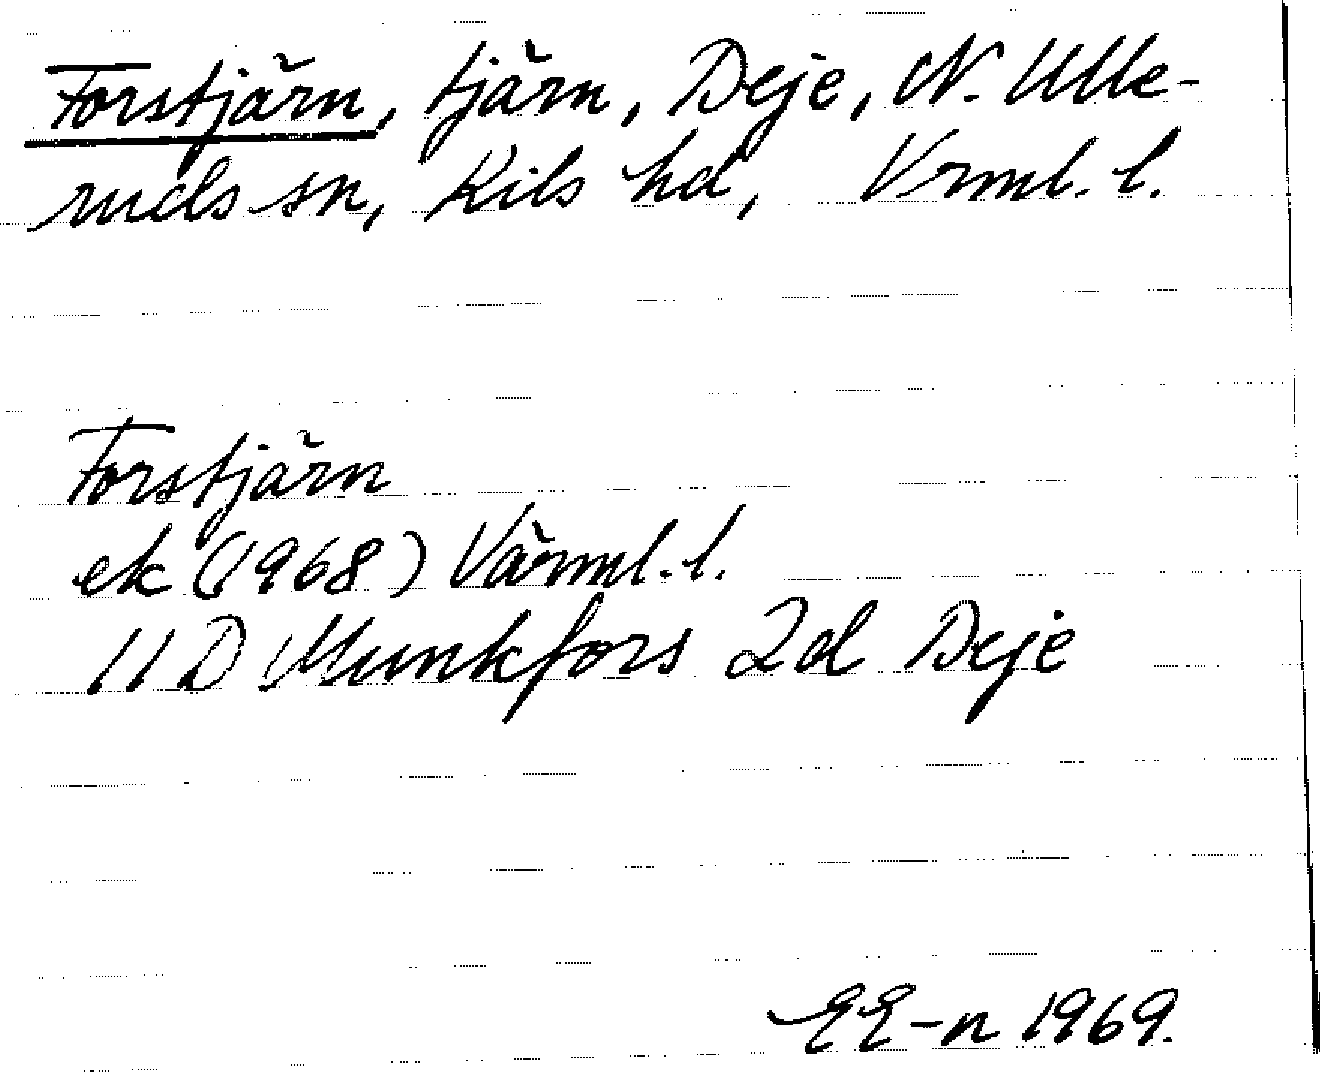 Forstjärn, tjärn, Deje, N. Ulle-
ruds sn, Kils hd, Vrml. l.
Forstjärn
ek (1968) Värml. l.
11 D Munkfors 2d Deje
EE-n 1969.